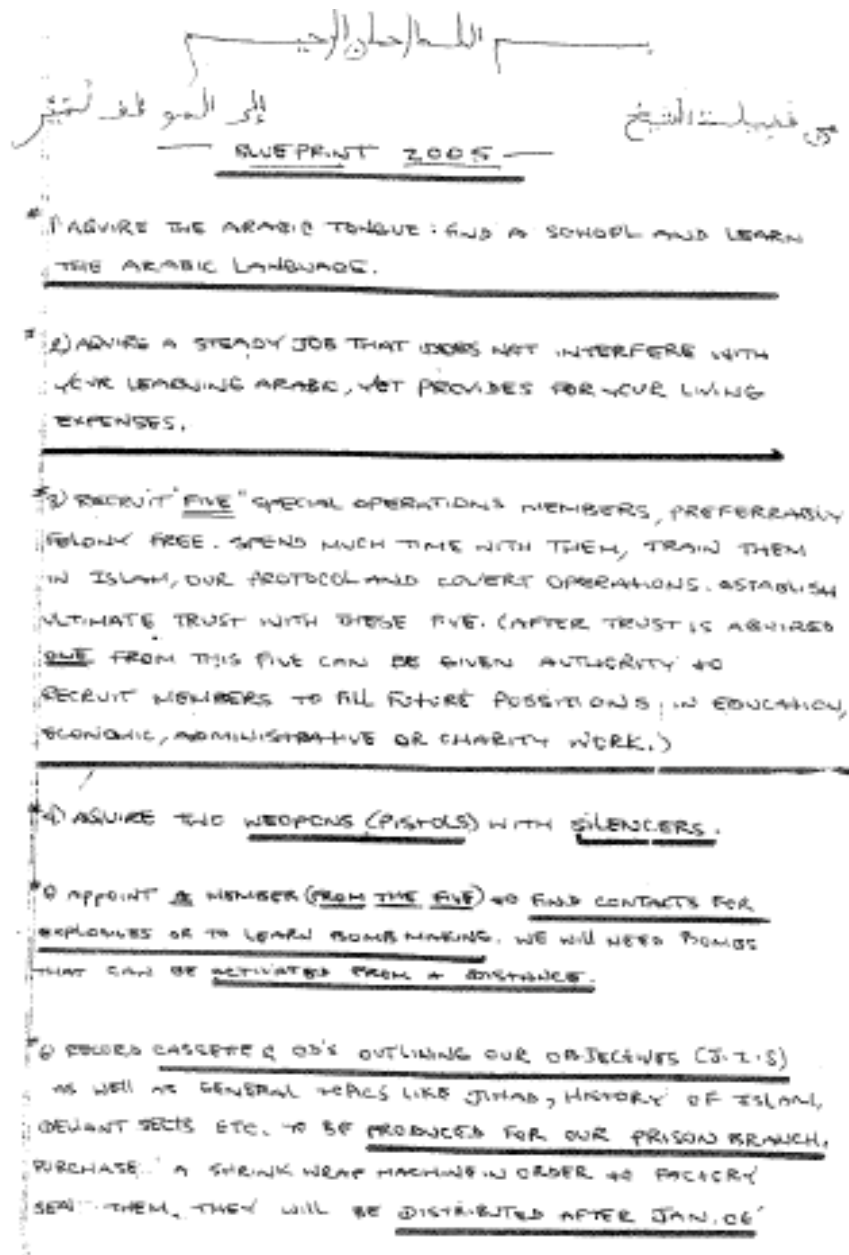 بسم الله الرحمن الرحيم
الشيخ إلى
BLUEPRINT 2005
* 1) AQUIRE THE ARABIC TONGUE: FIND A SCHOOL AND LEARN
THE ARABIC LANGUAGE.
* 2) AQUIRE A STEADY JOB THAT DOES NOT INTERFERE WITH
YOUR LEARNING ARABIC, YET PROVIDES FOR YOUR LIVING
EXPENSES.
* 3) RECRUIT "FIVE" SPECIAL OPERATIONS MEMBERS, PREFERRABLY
FELONY FREE. SPEND MUCH TIME WITH THEM, TRAIN THEM
IN ISLAM, OUR PROTOCOL AND COVERT OPERATIONS. ESTABLISH
ULTIMATE TRUST WITH THESE FIVE. (AFTER TRUST IS AQUIRED
ONE FROM THIS FIVE CAN BE GIVEN AUTHORITY TO
RECRUIT MEMBERS TO FILL FUTURE POSSITIONS, IN EDUCATION,
ECONOMIC, ADMINISTRATIVE OR CHARITY WORK.)
* 4) AQUIRE TWO WEOPONS (PISTOLS) WITH SILENCERS.
* 5) APPOINT A MEMBER (FROM THE FIVE) TO FIND CONTACTS FOR
EXPLOSIVES OR TO LEARN BOMB MAKING. WE WILL NEED BOMBS
THAT CAN BE ACTIVATED FROM A DISTANCE.
* 6) RECORD CASSETTE & CD'S OUTLINING OUR OBJECTIVES (J.I.S)
AS WELL AS GENERAL TOPICS LIKE JIHAD, HISTORY OF ISLAM,
DEVIANT SECTS ETC. TO BE PRODUCED FOR OUR PRISON BRANCH.
PURCHASE A SHRINK WRAP MACHINE IN ORDER TO FACTORY
SEAL THEM. THEY WILL BE DISTRIBUTED AFTER JAN. 06'